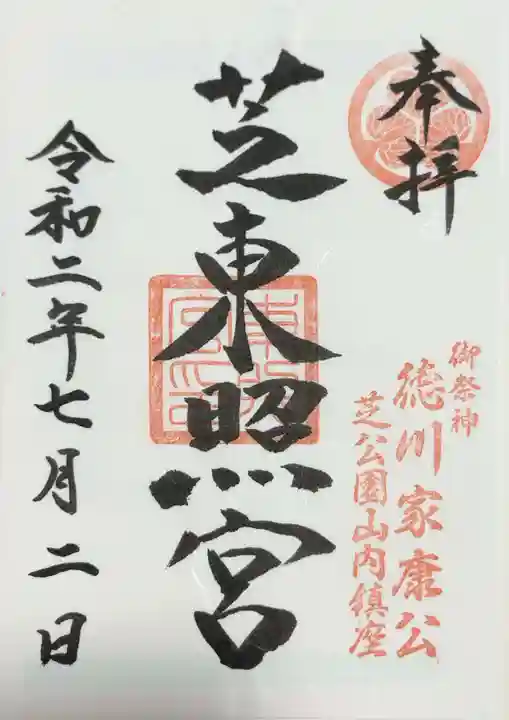 奉拝
御祭神
徳川家康公
芝公園山内鎮座
芝東照宮
令和二年七月二日